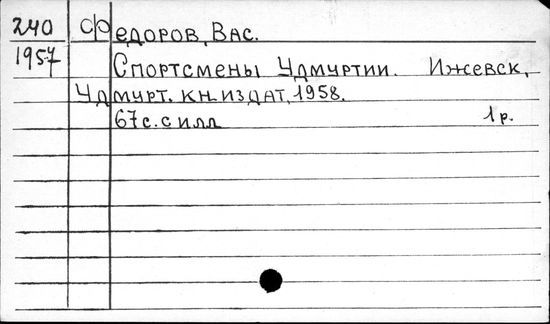 240 Федоров, Вас.
1957 Спортсмены Удмуртии. Ижевск,
Удмурт. кн. издат, 1958.
67с. с илл 1р.